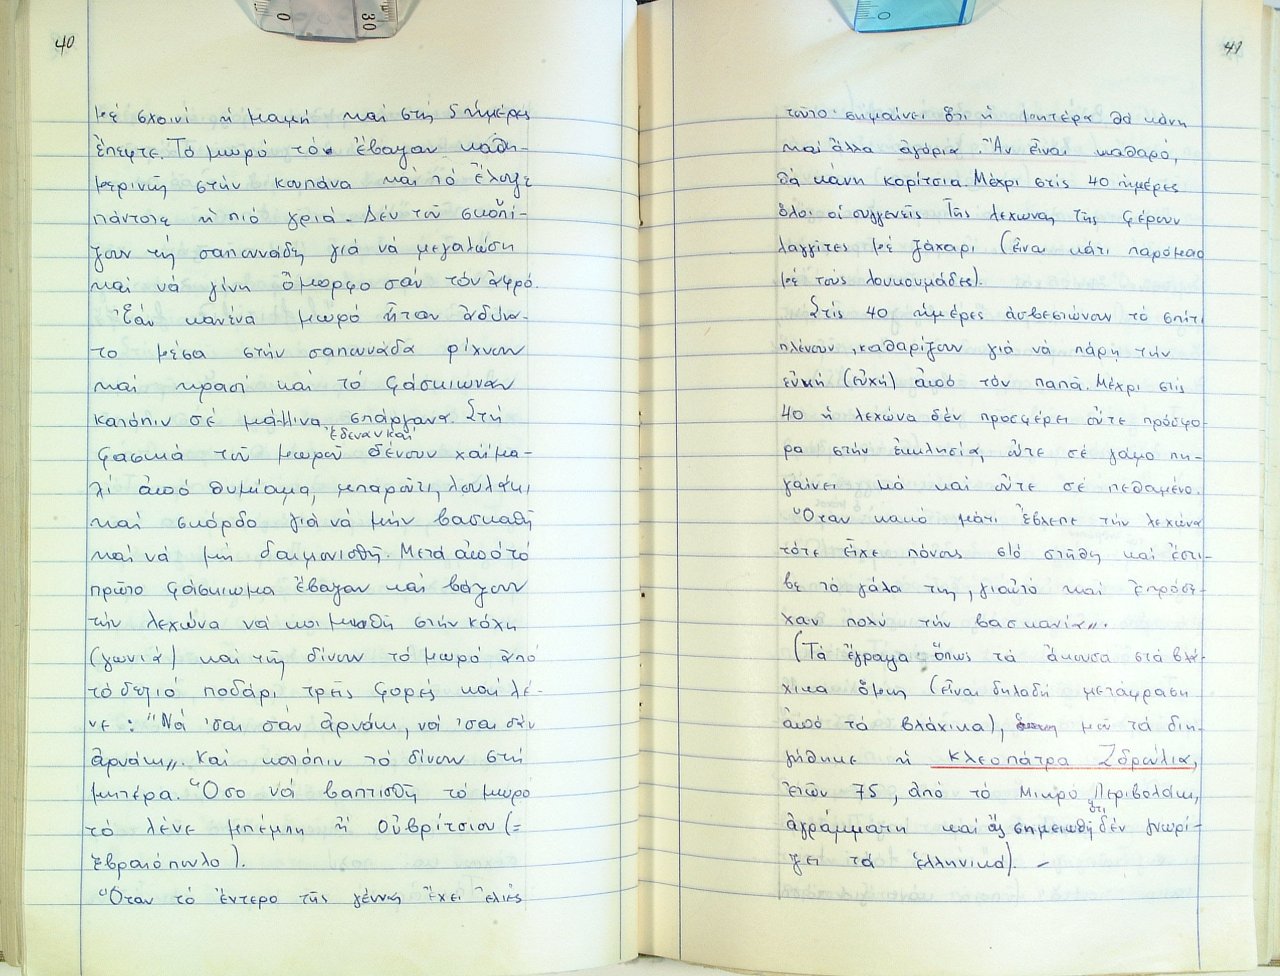 40
μέ σχοινί ἡ μαμή καί στίς 5 ἡμέρες
ἔπεφτε. Τό μωρό τό ἔβαγαν καθη-
μερινῶς στήν κουπάνα καί τό ἔλουζε
πάντοτε ἡ πιό γριά. Δέν τοῦ σκουπί-
ζουν τίς σαπουνάδες γιά νά μεγαλώση
καί νά γίνη ὄμορφο σάν τόν ἀφρό.
Ἐάν κανένα μωρό ἦταν ἀδύνα-
το μέσα στήν σαπουνάδα ρίχνουν
καί κρασί καί τό φάσκιωναν
κατόπιν σέ μάλλινα σπάργανα. Στή
ἔδεναν καί
φασκιά τοῦ μωροῦ δένουν χαϊμα-
λί ἀπό θυμίαμα, μπαροῦτι, λουλάκι
καί σκόρδο γιά νά μήν βασκαθῆ
καί νά μή δαιμονισθῆ. Μετά ἀπό τό
πρῶτο φάσκιωμα ἔβαγαν καί βάγουν
τήν λεχώνα νά κοιμηθῆ στήν κόχη
(γωνιά) καί τῆς δίνουν τό μωρό ἀπό
τό δεξιό ποδάρι τρεῖς φορές καί λέ-
νε: "Νά 'σαι σάν ἀρνάκι, νά 'σαι σάν
ἀρνάκι". Καί κατόπιν τό δίνουν στή
μητέρα. Ὅσο νά βαπτισθῆ τό μωρό
τό λένε μπέμπη ἤ οὐβρίτσιου (=
ἑβραιόπουλο).
Ὅταν τό ἔντερο τῆς γέννας ἔχει ἐλιές
41
τοῦτο σημαίνει ὅτι ἡ μητέρα θά κάνη
καί ἄλλα ἀγόρια. Ἄν εἶναι καθαρό,
θά κάνη κορίτσια. Μέχρι στίς 40 ἡμέρες
ὅλοι οἱ συγγενεῖς τῆς λεχώνας τῆς φέρουν
λαγγίτες μέ ζάχαρι (εἶναι κάτι παρόμοιο
μέ τούς λουκουμάδες).
Στίς 40 ἡμέρες ἀσβεστώνουν τό σπίτι
πλένουν, καθαρίζουν γιά νά πάρη τήν
εὐκή (εὐχή) ἀπό τόν παπά. Μέχρι στίς
40 ἡ λεχώνα δέν προσφέρει οὔτε πρόσφο-
ρα στήν ἐκκλησία, οὔτε σέ γάμο πη-
γαίνει μά καί οὔτε σέ πεθαμένο.
Ὅταν κακό μάτι ἔβλεπε τήν λεχώνα
τότε εἶχε πόνους στό στῆθος καί ἔστι-
βε τό γάλα της, γιαὐτό καί ἐπρόσε-
χαν πολύ τήν βασκανία".
(Τά ἔγραψα ὅπως τά ἄκουσα στά βλά-
χικα ὅμως (εἶναι δηλαδή μετάφραση
ἀπό τά βλάχικα), μοῦ τά διη-
γήθηκε ἡ Κλεοπάτρα Ζδρούλια,
ἐτῶν 75, ἀπό τό Μικρό Περιβολάκι,
ὅτι
ἀγράμματη καί ἄς σημειωθῆ δέν γνωρί-
ζει τά ἑλληνικά). –